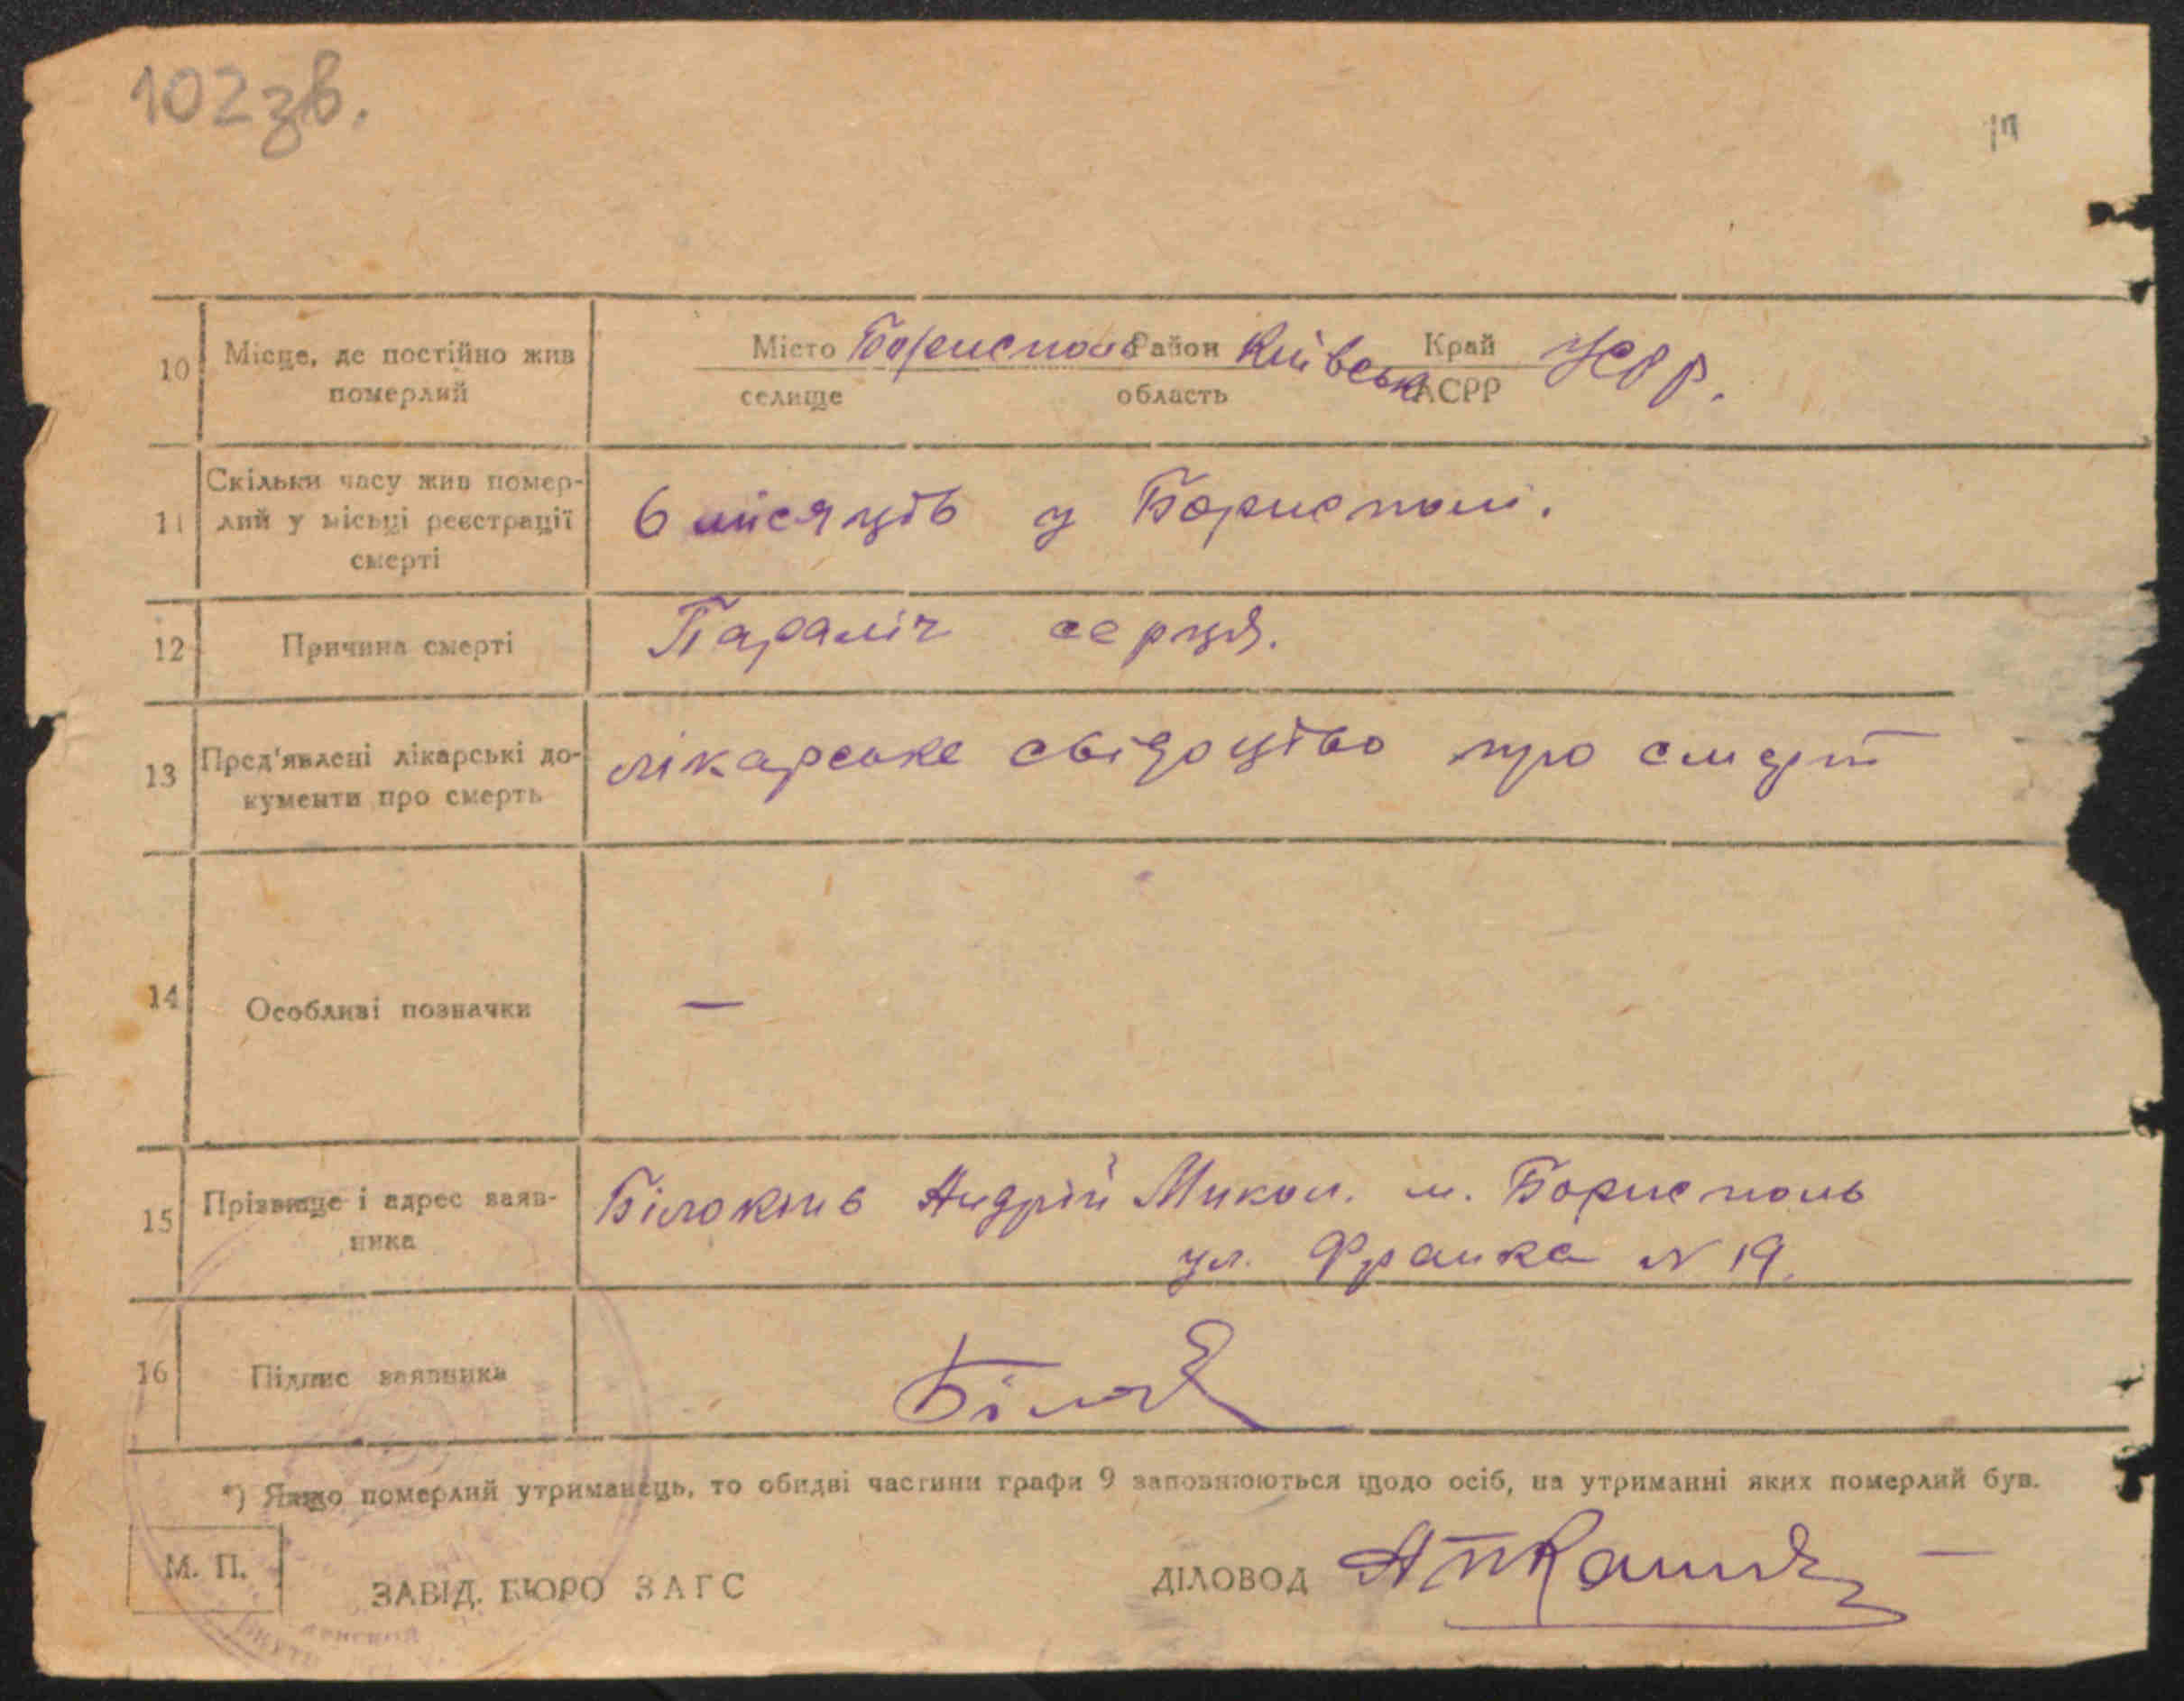 102зв.
10 Місце, де постійно жив померлий
Місто Борисполь Район Київськ Край УСРР.
селище область АСРР
11 Скільки часу жив помер-
лий у місьці реєстрації
смерті
6 місяців у Борисполі.
12 Причина смерті Параліч серця.
13 Пред'явлені лікарські до-
кументи про смерть
лікарське свідоцтво про смерт
14 Особливі позначки —
15 Прізвище і адрес заяв-
ника
Білоконь Андрій Микол. м. Борисполь
ул. Франка N 19.
16 Підпис заявника Біло
*) Якщо померлий утриманець, то обидві частини графи 9 заповнюються щодо осіб, на утриманні яких померлий був.
М. П.
ЗАВІД. БЮРО ЗАГС
ДІЛОВОД